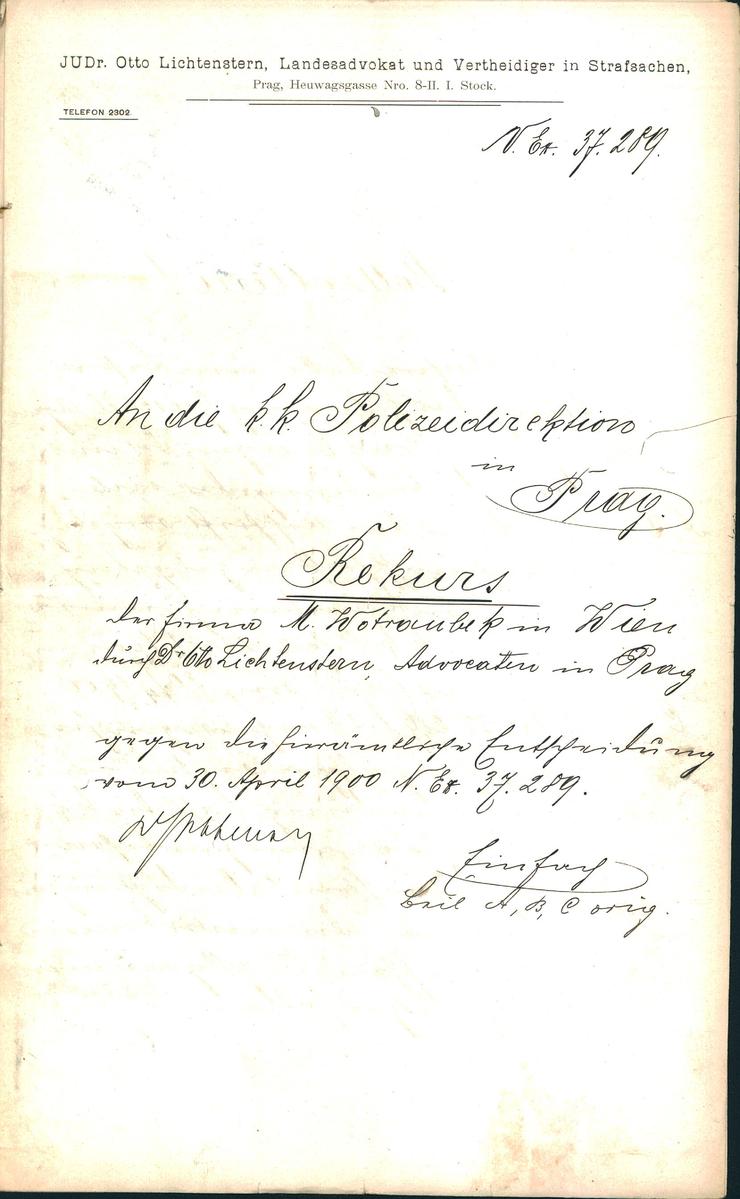 JUDr. Otto Lichtenstern, Landesadvokat und Vertheidiger in Strafsachen,
Prag, Heuwagsgasse Nro. 8-II. I. Stock.
TELEFON 2302.
N. Ex. 37.289.
An die k.k. Polizeidirektion
in
Prag.
Rekurs
der Firma M. Wotraubek in Wien
durch Dr Otto Lichtenstern, Advocaten in Prag
gegen die hierämtliche Entscheidung
vom 30. April 1900 N. Ex. 37.289.
Einfach
Beil A, B, C orig.